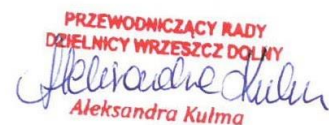 PRZEWODNICZĄCY RADY
DZIELNICY WRZESZCZ DOLNY
Aleksandra Kulma
Aleksandra Kulma